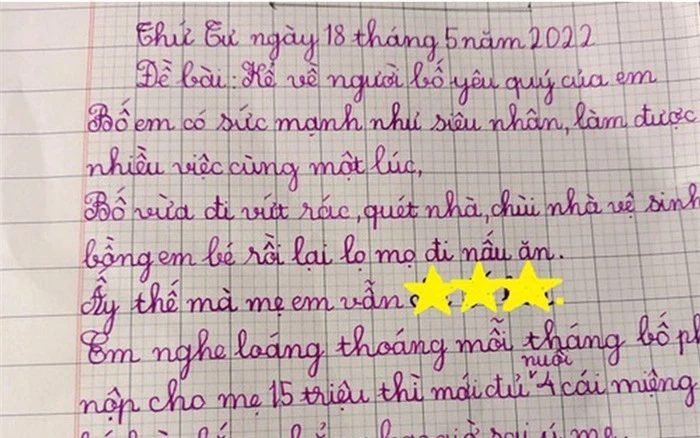 Thứ Tư ngày 18 tháng 5 năm 2022
Đề bài: Kể về người bố yêu quý của em
Bố em có sức mạnh như siêu nhân, làm được
nhiều việc cùng một lúc,
Bố vừa đi vứt rác, quét nhà, chùi nhà vệ sinh
bồng em bé rồi lại lọ mọ đi nấu ăn.
Ấy thế mà mẹ em vẫn
Em nghe loáng thoáng mỗi tháng bố
nuôi
nộp cho mẹ 15 triệu thì mới đủ 4 cái miệng